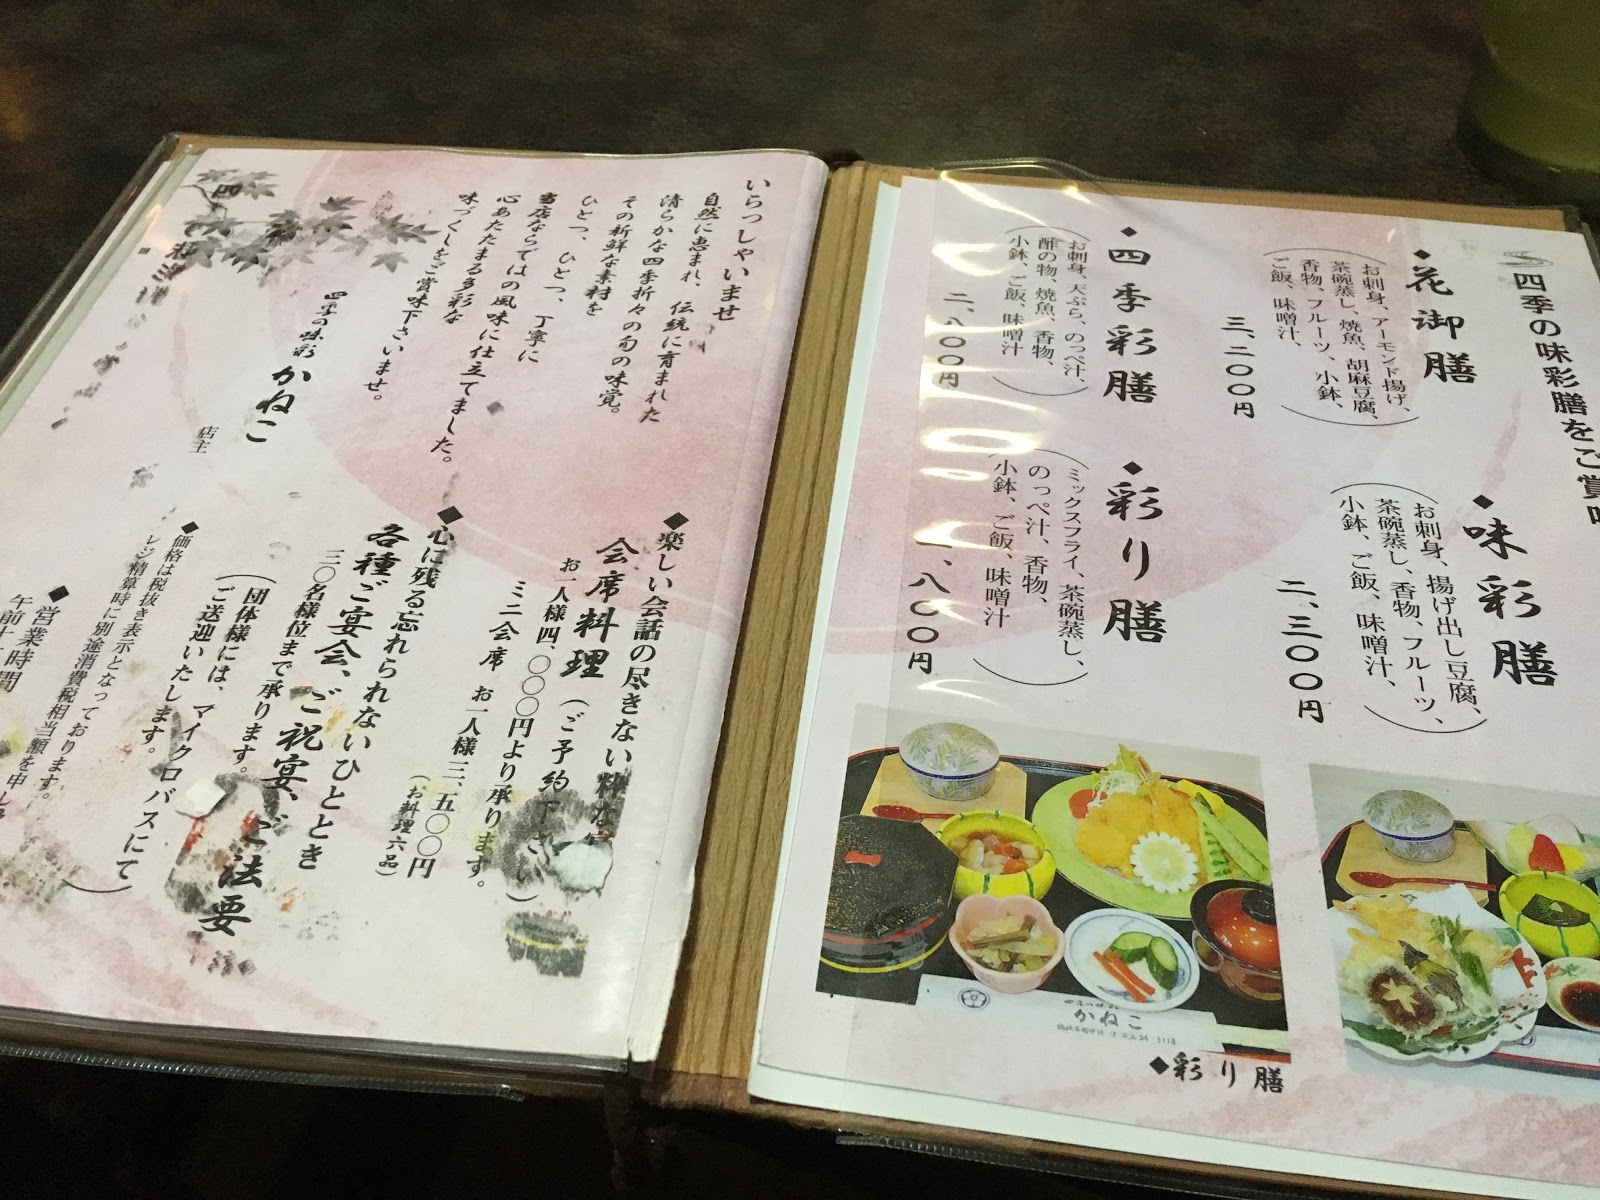 いらっしゃいませ
自然に恵まれ、伝統に育まれた
清らかな四季折々の旬の味覚。
その新鮮な素材を
ひとつ、ひとつ、丁寧に
当店ならではの風味に仕立てました。
心あたたまる多彩な
味づくしをご賞味下さいませ。
四季の味彩 かねこ
店主
◆楽しい会話の尽きない粋な
会席料理(ご予約下さい)
お一人様四、〇〇〇円より承ります。
ミニ会席 お一人様三、五〇〇円
(お料理六品)
◆心に残る忘れられないひととき
各種ご宴会、ご祝宴、ご法要
三〇名様位まで承ります。
(団体様には、マイクロバスにて
ご送迎いたします。)
◆価格は税抜き表示となっております。
レジ精算時に別途消費税相当額を申し
◆営業時間
午前十
四季の味彩膳をご賞味
◆花御膳
(お刺身、アーモンド揚げ、
茶碗蒸し、焼魚、胡麻豆腐、
香物、フルーツ、小鉢、
ご飯、味噌汁、)
三、二〇〇円
◆味彩膳
(お刺身、揚げ出し豆腐、
茶碗蒸し、香物、フルーツ、
小鉢、ご飯、味噌汁、)
二、三〇〇円
◆四季彩膳
(お刺身、天ぷら、のっぺ汁、
酢の物、焼魚、香物、
小鉢、ご飯、味噌汁)
二、八〇〇円
◆彩り膳
(ミックスフライ、茶碗蒸し、
のっぺ汁、香物、
小鉢、ご飯、味噌汁)
八〇〇円
かねこ
◆彩り膳